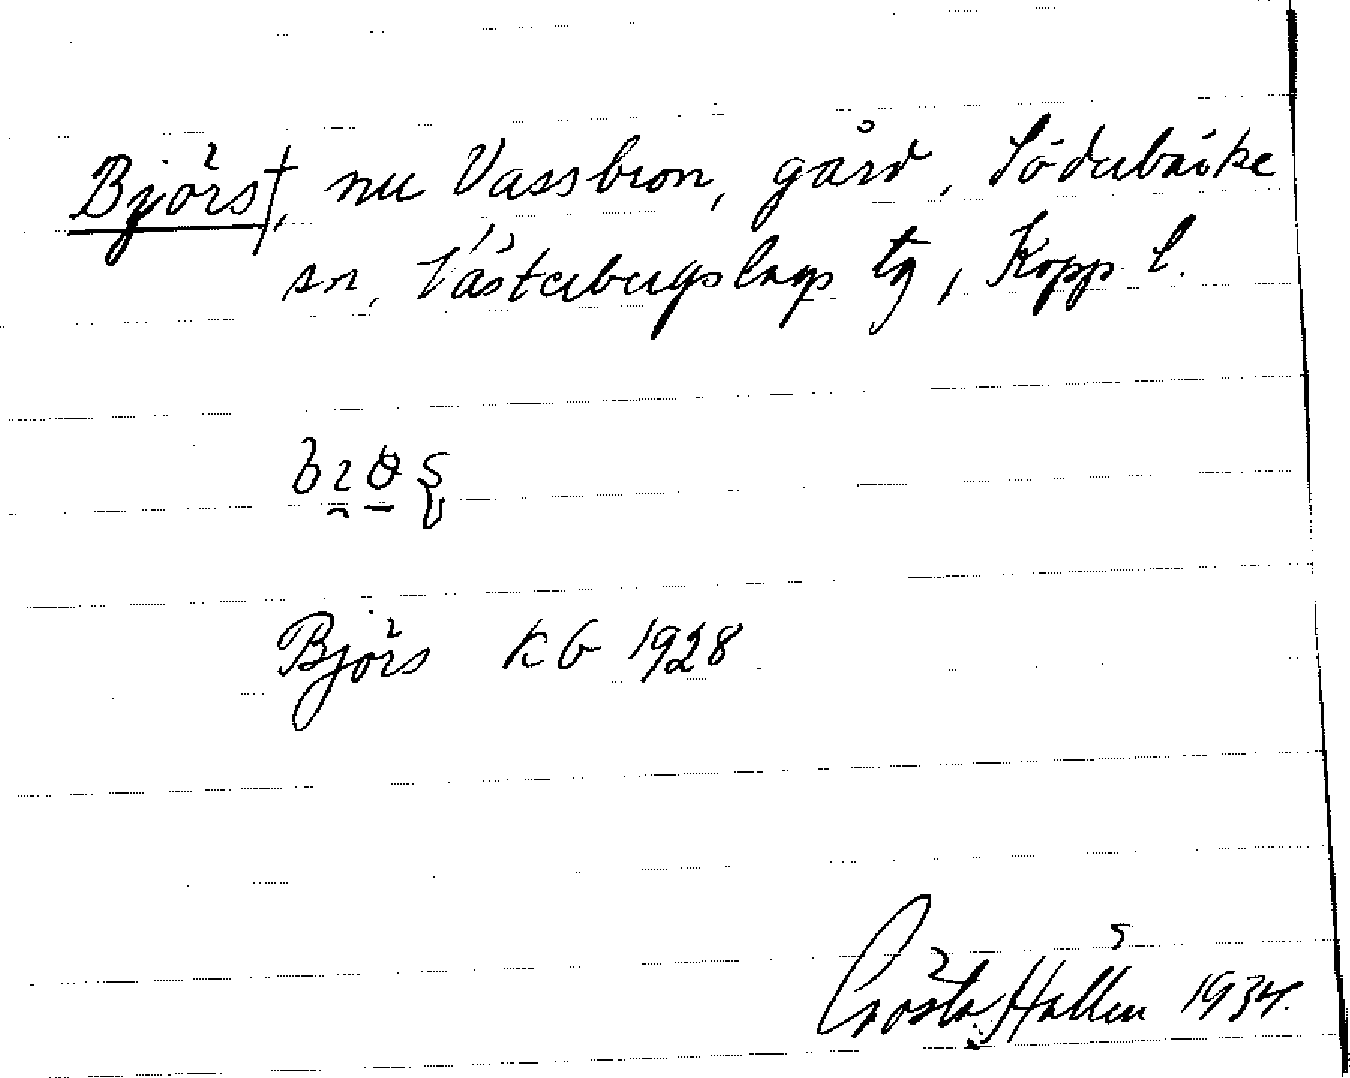 Björs†, nu Vassbron, gård, Söderbärke
sn, Västerbergslags tg, Kopp l.
Björs KG 1928
Gösta Hallén 1934.